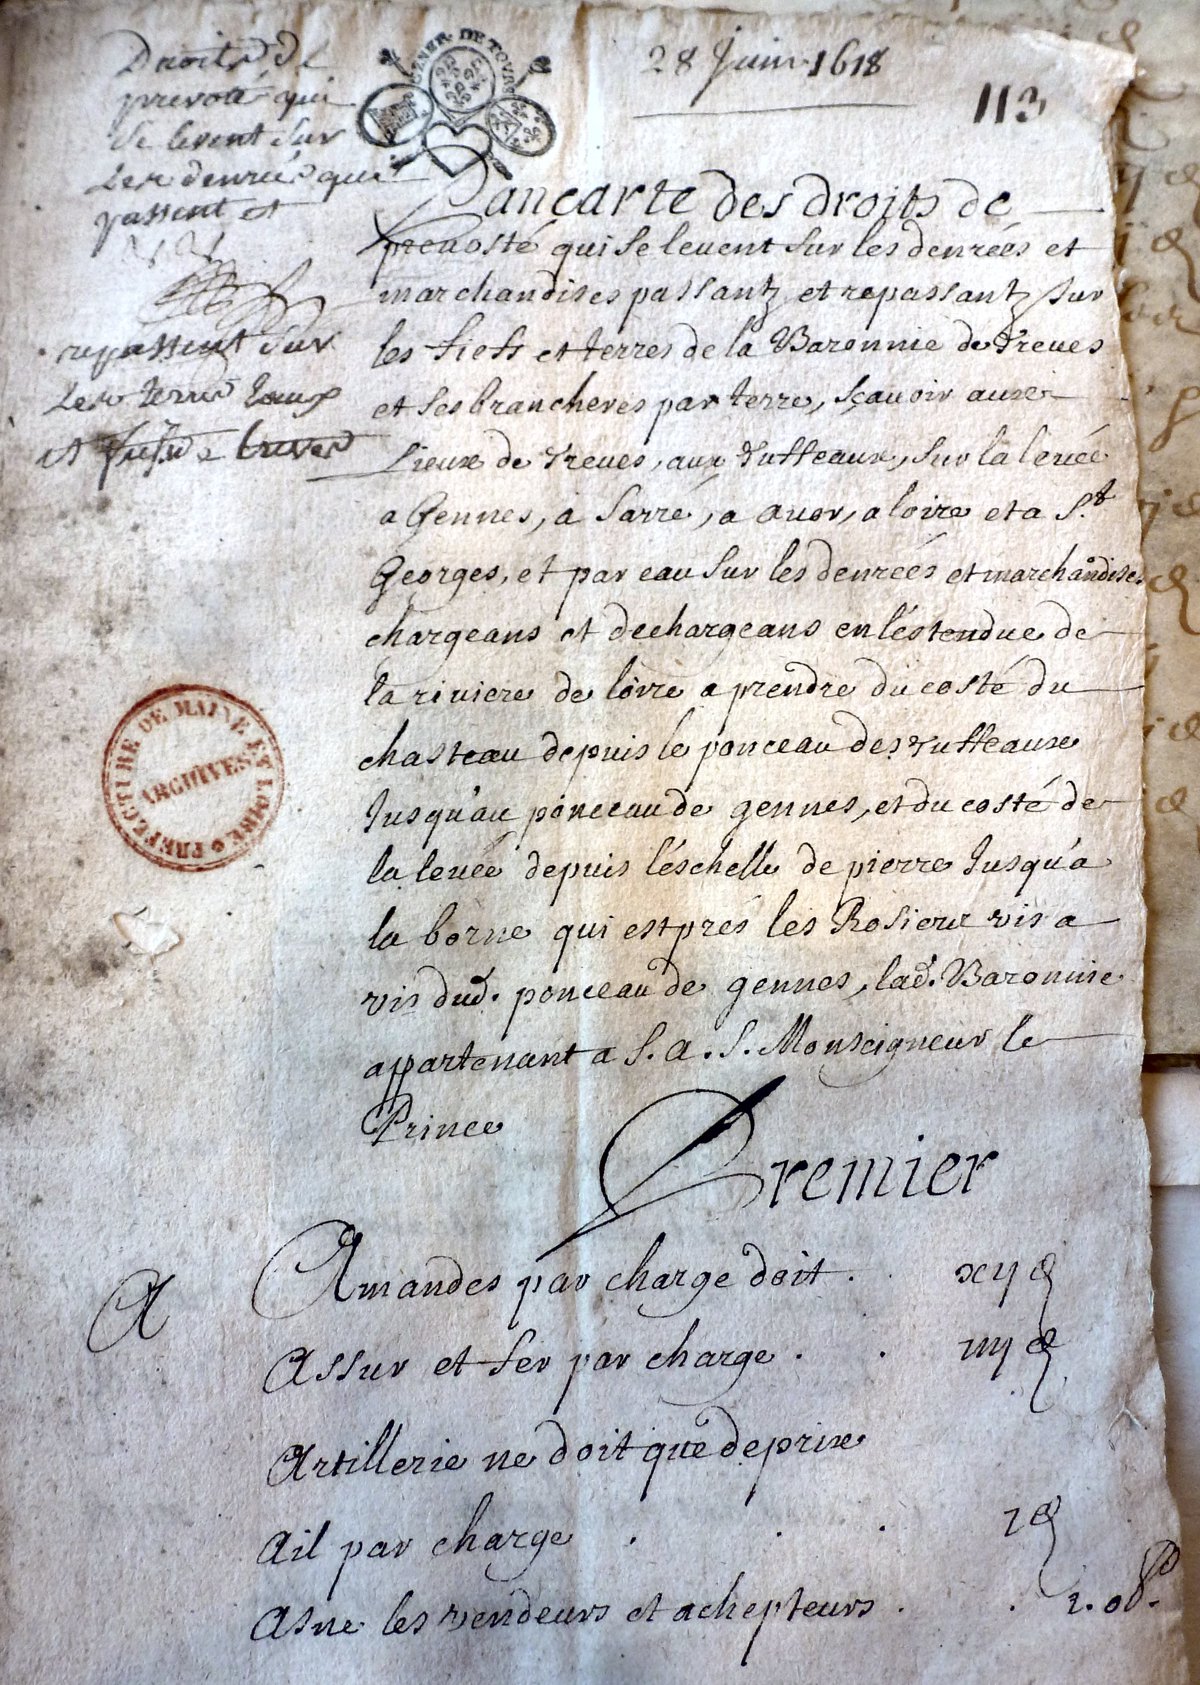 28 Juin 1618
113
GENER. DE TOVRS
Droits de
prevoté qui
se levent sur
les denrées qui
passent et
repassent sur
les terres
et
Pancarte des droits de
prevosté qui se leuent sur les denrées et
marchandises passantz et repassantz sur
les fiefs et terres de la Baronnie de Treues
et ses brancheres par terre, sçauoir aux
Lieux de Treues, aux Tuffeaux, sur la leuée
a Gennes, a Sarré, a auor, a loire et a S.t
Georges, et par eau sur les denrées et marchandises
chargeans et dechargeans en léstendue de
la riuiere de loire a prendre du costé du
chasteau depuis le ponceau des Tuffeaux
Jusqu'au ponceau de gennes, et du costé de
la leuée depuis léschelle de pierre Jusqu'a
la borne qui est prés les Rosiers vis a
vis dud. ponceau de gennes, lad. Baronnie
appartenant a S. A. S. Monseigneur le
Prince
Premier
PREFECTURE DE MAINE ET LOIRE
ARCHIVES
A
Amandes par charge doit . . xij d
Assur et fer par charge . . iiij d
Artillerie ne doit que deprix
Ail par charge . . . 1 d
Asne les vendeurs et achepteurs . . 2. ob.